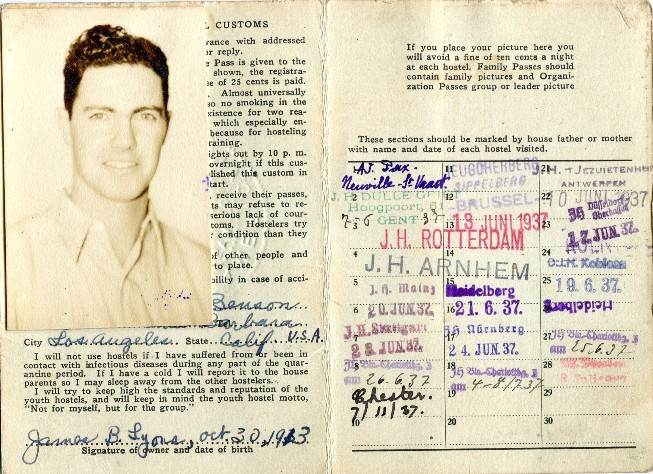 L CUSTOMS
vance with addressed
or reply.
e Pass is given to the
shown, the registra-
e of 25 cents is paid.
Almost universally
o no smoking in the
xistence for two rea-
which especially en-
because for hosteling
raining.
ghts out by 10 p. m.
overnight if this cus-
blished this custom in
tart.
receive their passes,
ts may refuse to re-
serious lack of cour-
toms. Hostelers try
condition than they
of other people and
to place.
bility in case of acci-
Benson
Barbara
City Los Angeles State Calif. U.S.A.
I will not use hostels if I have suffered from or been in
contact with infectious diseases during any part of the quar-
antine period. If I have a cold I will report it to the house
parents so I may sleep away from the other hostelers.
I will try to keep high the standards and reputation of the
youth hostels, and will keep in mind the youth hostel motto,
"Not for myself, but for the group."
James B. Lyons, oct. 30, 1913
Signature of owner and date of birth
If you place your picture here you
will avoid a fine of ten cents a night
at each hostel. Family Passes should
contain family pictures and Organi-
zation Passes group or leader picture
These sections should be marked by house father or mother
with name and date of each hostel visited.
Neuville-St Vaast
J. H. DULCE
Hoogpoort
GENT
7-6 37
JEUGDHERBERG
BRUSSEL
13 JUNI 1937
H. 't JEZUIETENHUIS
ANTWERPEN
10 JUNI 1937
J.H. ROTTERDAM
J.H. ARNHEM
JH Düsseldorf
Oberkassel
17. JUN. 37.
KÖLN
D.J.H. Koblenz
19. 6. 37.
J.H. Mainz
20. JUN. 37.
Heidelberg
21. 6. 37.
Heidelberg
J.H. Stuttgart
JH Nürnberg
24. JUN. 37.
am 25.6.37
am 26.6.37
am 4-8/7 37
Chester.
7/11/37.
2
3
4
5
6
7
8
10
11
12
13
14
15
16
17
18
19
20
22
23
24
25
26
27
28
29
30